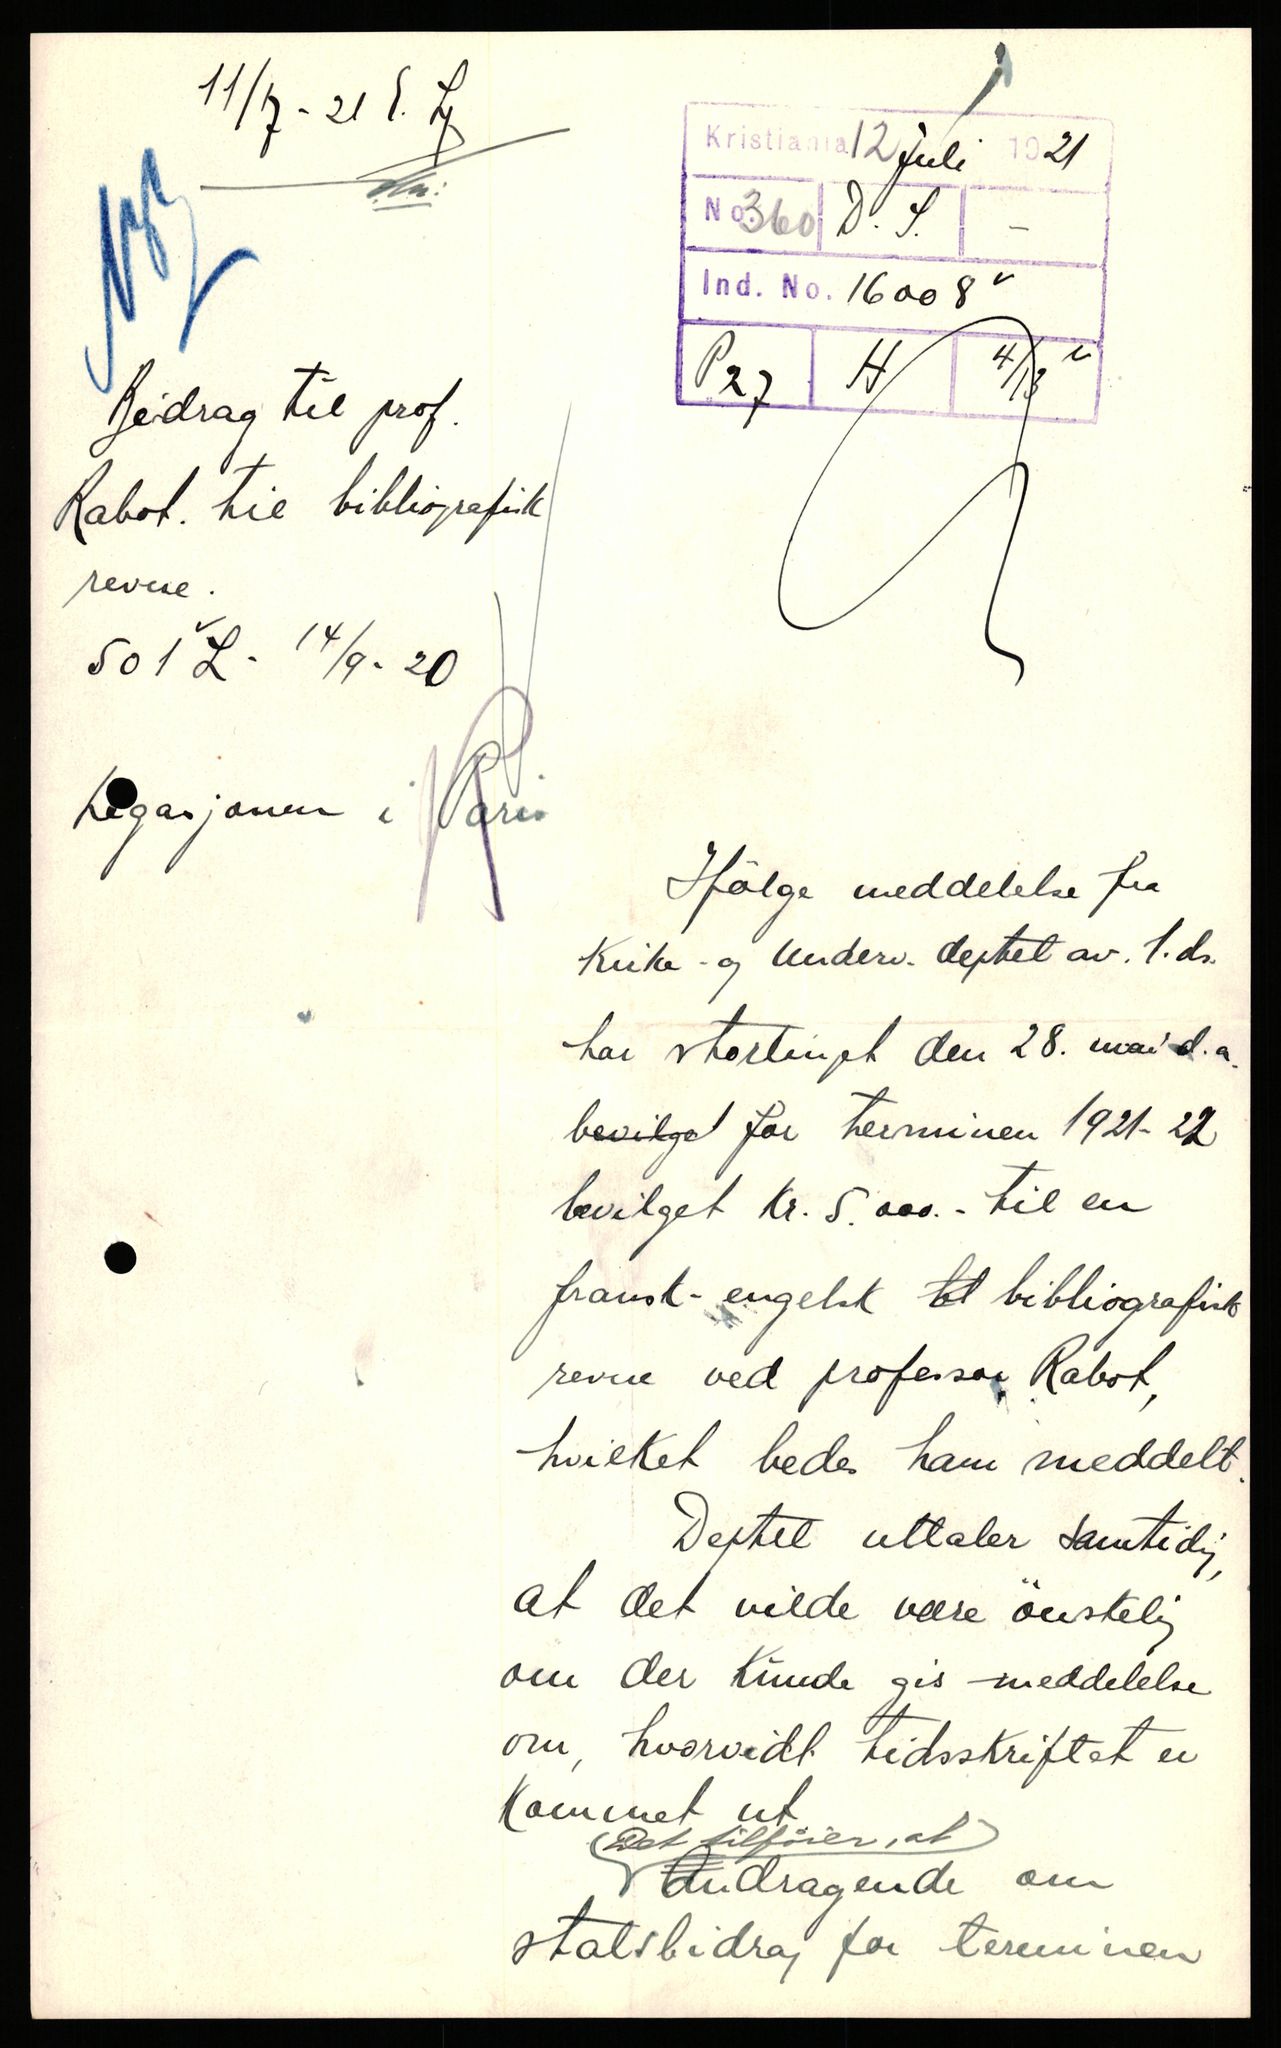 11/7 - 21 E. Ly
Kristiania 12 juli 1921
No. 360 D. S. -
Ind. No. 16008
P27 H 4/13
Bidrag til prof.
Rabot. til bibliografisk
revue.
501 L - 14/9 - 20
Legasjonen i Paris
Ifölge meddelelse fra
Kirke- og Underv. deptet av 1. ds.
har stortinget den 28. mai d.a.
bevilget for terminen 1921-22
bevilget Kr. 5.000.- til en
fransk-engelsk bibliografisk
revue ved professor Rabot,
hvilket bedes ham meddelt.
Deptet uttaler samtidig,
at det vilde være önskelig
om der kunde gis meddelelse
om, hvorvidt tidsskriftet er
kommet ut
Det tilföier, at
Andragende om
statsbidrag for terminen